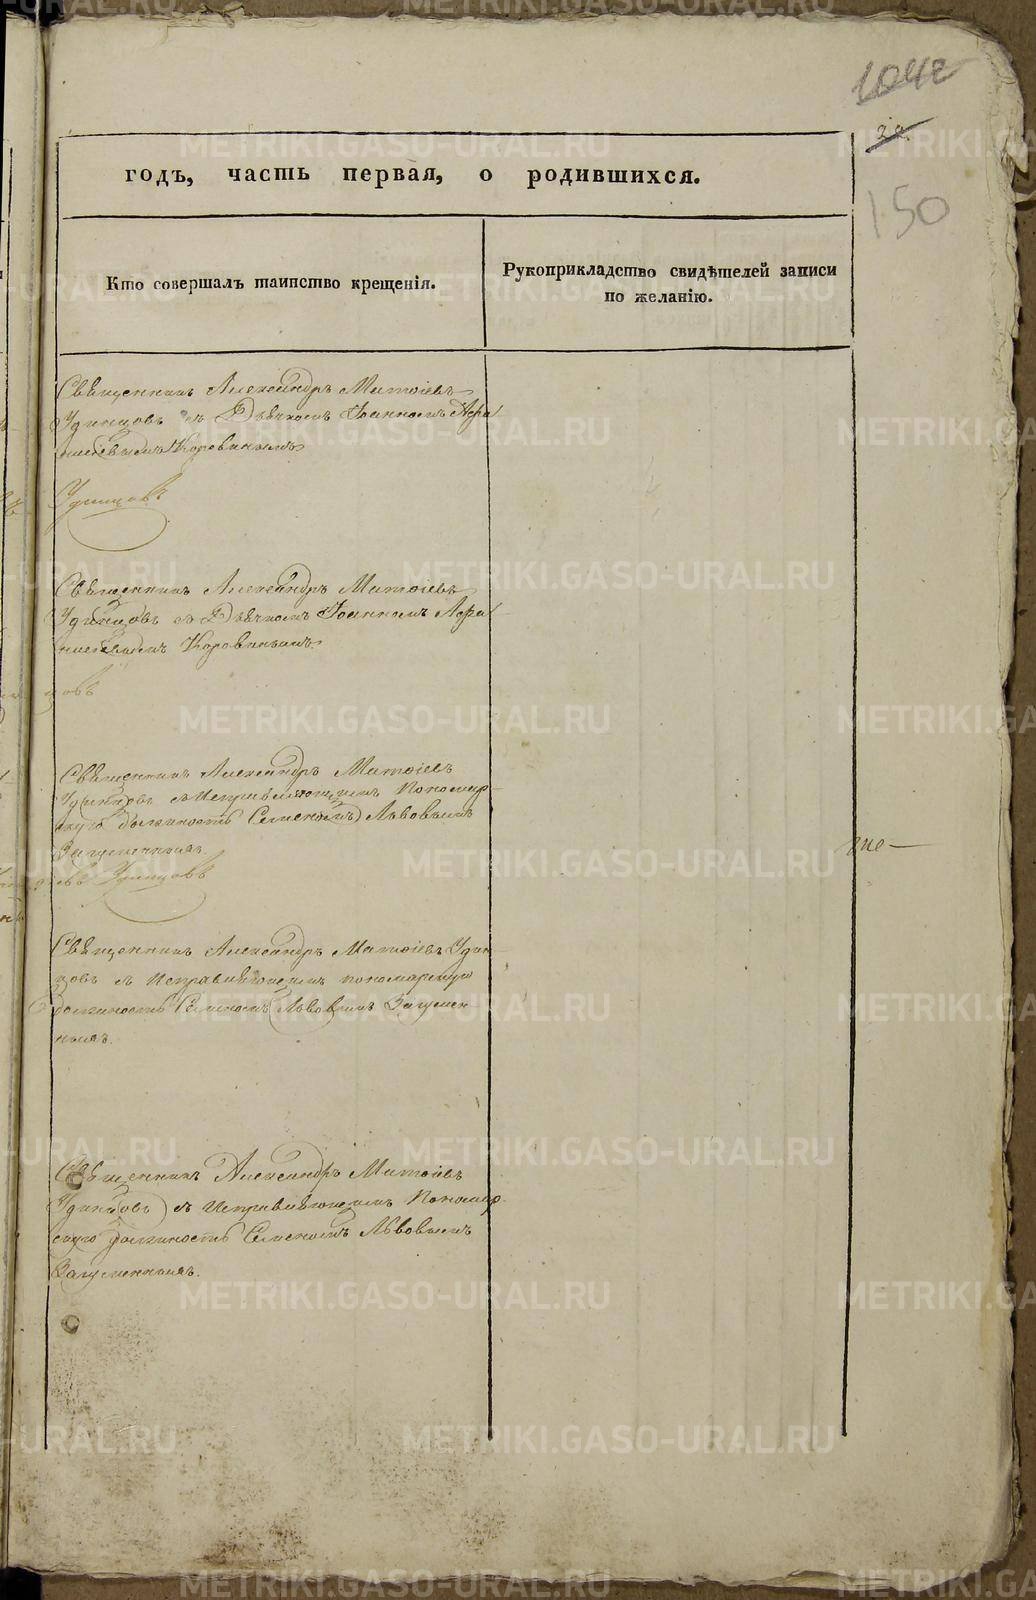 1042
29
150
годъ, часть первая, о родившихся.
Кто совершалъ таинство крещенія.
Рукоприкладство свидѣтелей записи
по желанію.
Священникъ Александръ Матѳіевъ
Удинцовъ съ Дьячкомъ Іоанномъ Афа
насіевымъ Коровинымъ
Удинцовъ
Священникъ Александръ Матѳіевъ
Удинцовъ съ Дьячкомъ Іоанномъ Афа
Коровинымъ
цовъ
Священникъ Александръ Матѳіевъ
Удинцовъ съ Исправляющимъ Пономар
скую должность Семеномъ Львовымъ
Загуменныхъ.
Удинцовъ
Священникъ Александръ Матѳіевъ Удин
цовъ съ Исправляющимъ пономарскую
должность Семеномъ Львовымъ Загумен
ныхъ.
Священникъ Александръ Матѳіевъ
Удинцовъ съ Исправляющимъ Пономар
скую должность Семеномъ Львовымъ
Загуменныхъ.
METRIKI.GASO-URAL.RU